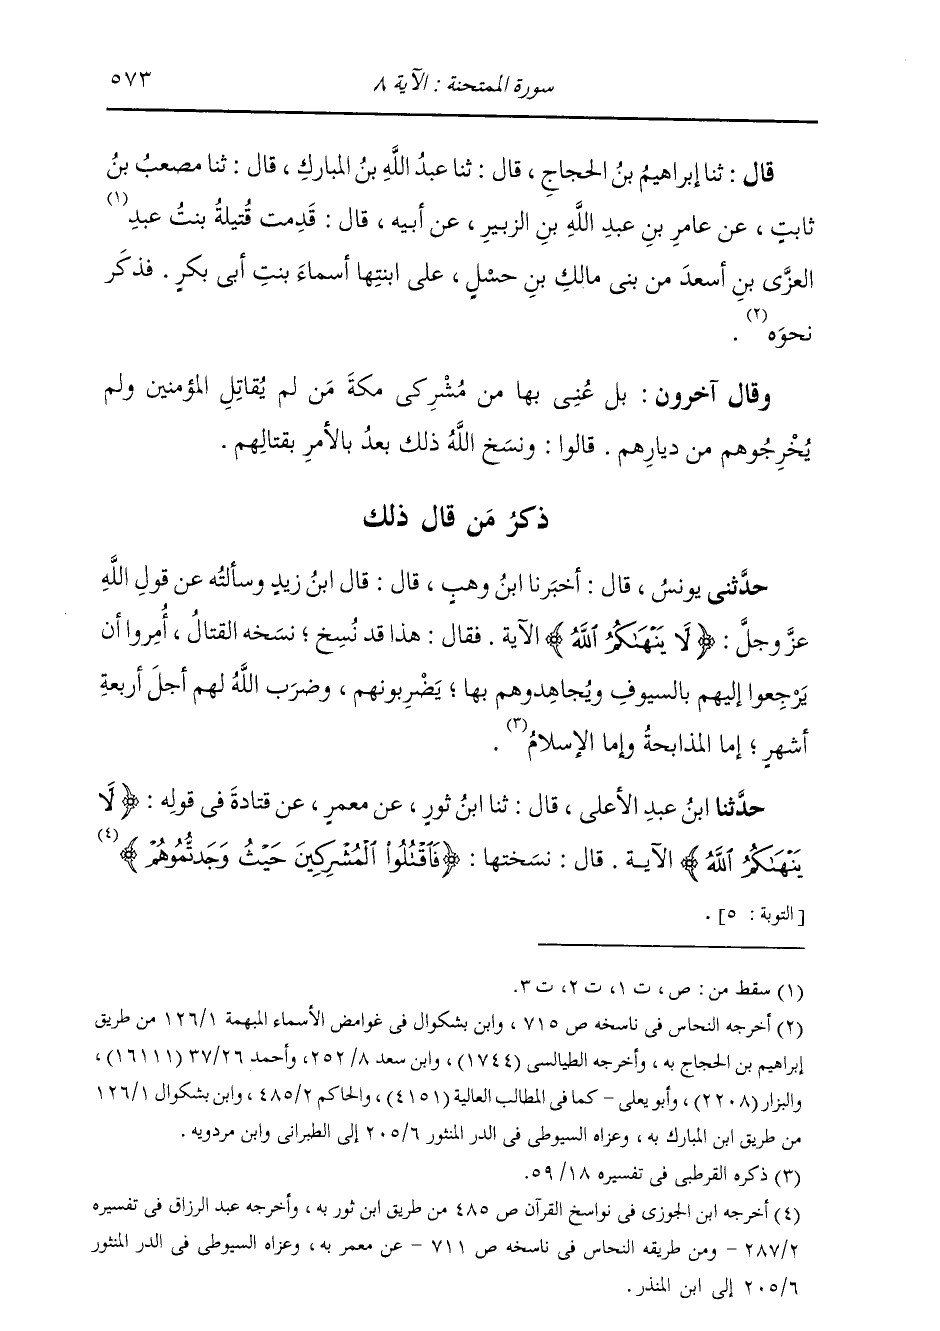 سورة الممتحنة : الآية ٨
٥٧٣
قال : ثنا إبراهيمُ بنُ الحجاجِ ، قال : ثنا عبدُ اللَّهِ بنُ المباركِ ، قال : ثنا مصعبُ بنُ
ثابتٍ ، عن عامرِ بنِ عبدِ اللَّهِ بنِ الزبيرِ ، عن أبيه ، قال : قَدِمت قُتيلةُ بنتُ عبدِ(١)
العزَّى بنِ أسعدَ من بنى مالكِ بنِ حسْلٍ ، على ابنتِها أسماءَ بنتِ أبى بكرٍ . فذكَر
نحوَه(٢) .
وقال آخرون : بل عُنِى بها من مُشْرِكى مكةَ مَن لم يُقاتِلِ المؤمنين ولم
يُخْرِجُوهم من ديارِهم . قالوا : ونسَخ اللَّهُ ذلك بعدُ بالأمرِ بقتالِهم .
ذكرُ مَن قال ذلك
حدَّثنى يونسُ ، قال : أخبَرنا ابنُ وهبٍ ، قال : قال ابنُ زيدٍ وسألتُه عن قولِ اللَّهِ
عزَّ وجلَّ : ﴿ لَّا يَنْهَىٰكُمُ ٱللَّهُ ﴾ الآية . فقال : هذا قد نُسِخ ؛ نسَخه القتالُ ، أُمِروا أن
يَرْجِعوا إليهم بالسيوفِ ويُجاهِدوهم بها ؛ يَضْرِبونهم ، وضرَب اللَّهُ لهم أجلَ أربعةِ
أشهرٍ ؛ إما المذابحةُ وإما الإسلامُ(٣) .
حدَّثنا ابنُ عبدِ الأعلى ، قال : ثنا ابنُ ثورٍ ، عن معمرٍ ، عن قتادةَ فى قولِه : ﴿ لَّا
يَنْهَىٰكُمُ ٱللَّهُ ﴾ الآيـة . قال : نسَختها : ﴿ فَٱقْتُلُوا۟ ٱلْمُشْرِكِينَ حَيْثُ وَجَدتُّمُوهُمْ ﴾(٤)
[ التوبة : ٥] .
(١) سقط من : ص ، ت ١، ت ٢، ت ٣.
(٢) أخرجه النحاس فى ناسخه ص ٧١٥ ، وابن بشكوال فى غوامض الأسماء المبهمة ١٢٦/١ من طريق
إبراهيم بن الحجاج به ، وأخرجه الطيالسى (١٧٤٤) ، وابن سعد ٢٥٢/٨، وأحمد ٣٧/٢٦ (١٦١١١) ،
والبزار (٢٢٠٨) ، وأبو يعلى - كما فى المطالب العالية (٤١٥١) ، والحاكم ٤٨٥/٢ ، وابن بشكوال ١٢٦/١
من طريق ابن المبارك به ، وعزاه السيوطى فى الدر المنثور ٢٠٥/٦ إلى الطبرانى وابن مردويه .
(٣) ذكره القرطبى فى تفسيره ٥٩/١٨.
(٤) أخرجه ابن الجوزى فى نواسخ القرآن ص ٤٨٥ من طريق ابن ثور به ، وأخرجه عبد الرزاق فى تفسيره
٢٨٧/٢ - ومن طريقه النحاس فى ناسخه ص ٧١١ - عن معمر به ، وعزاه السيوطى فى الدر المنثور
٢٠٥/٦ إلى ابن المنذر .